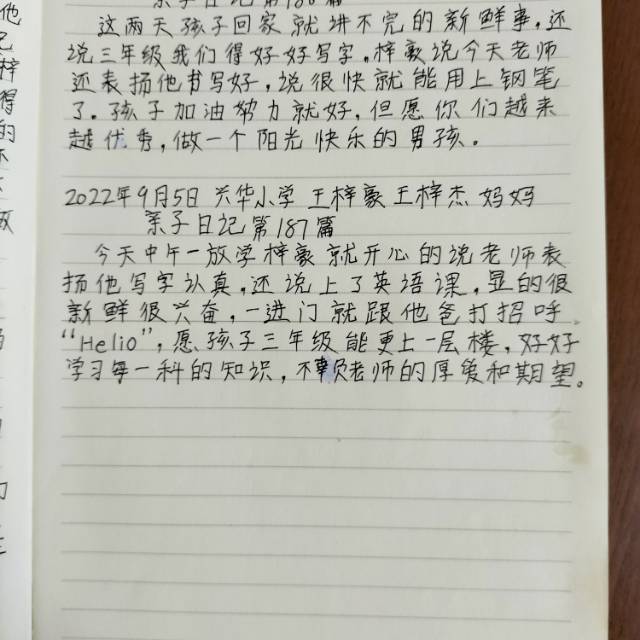 亲子日记第186篇
这两天孩子回家就讲不完的新鲜事，还
说三年级我们得好好写字，梓豪说今天老师
还表扬他书写好，说很快就能用上钢笔
了。孩子加油努力就好，但愿你们越来
越优秀，做一个阳光快乐的男孩。
2022年9月5日 兴华小学 王梓豪 王梓杰 妈妈
亲子日记第187篇
今天中午一放学梓豪就开心的说老师表
扬他写字认真，还说上了英语课，显的很
新鲜很兴奋，一进门就跟他爸打招呼
“Helio”，愿孩子三年级能更上一层楼，好好
学习每一科的知识，不辜负老师的厚爱和期望。